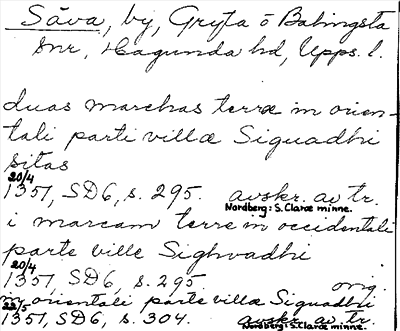 Såva, by, Gryta o Balingsta
snr, Hagunda hd, Upps. l.
duas marchas terræ in orien-
tali parti villæ Siguadhi
sitas
20/4
1351, SD6, s. 295. avskr. av tr.
Nordberg: S. Claræ minne.
i marcam terre in occidentali
parte ville Sighvadhi
20/4
1351, SD6, s. 295. orig.
in orientali parte villæ Siguadhi
22/5
1351, SD6, s. 304. avskr. av tr.
Nordberg: S. Claræ minne.